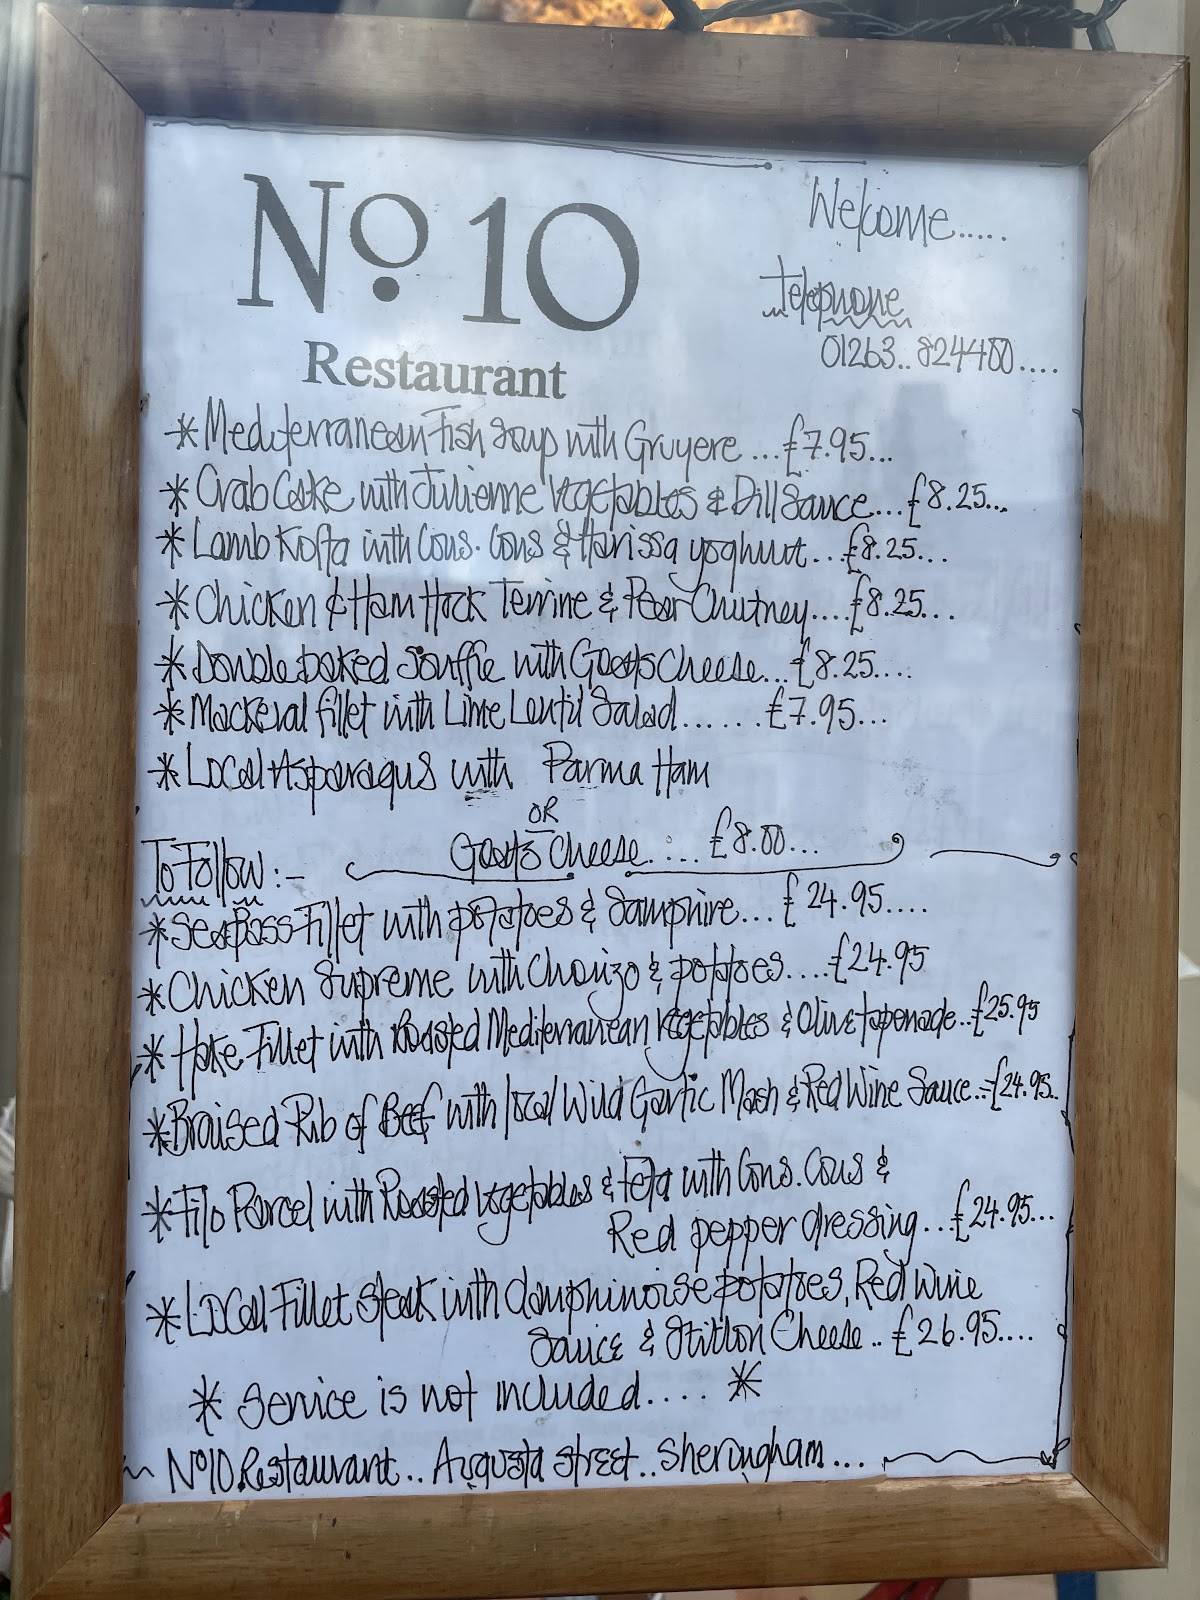 No 10
Restaurant
Welcome.....
Telephone
01263..824400....
*Mediterranean Fish Soup with Gruyere...£7.95...
*Crab Cake with Julienne Vegetables & Dill Sauce...£8.25...
*Lamb Kofta with Cous.Cous & Harissa yoghurt...£8.25...
*Chicken & Ham Hock Terrine & Pear Chutney....£8.25...
*Double baked Souffle with Goats Cheese...£8.25....
*Mackeral fillet with Lime Lentil Salad......£7.95...
*Local Asparagus with Parma Ham
OR
Goats Cheese.....£8.00...
To Follow:-
*Sea Bass Fillet with potatoes & Samphire...£24.95....
*Chicken Supreme with Chorizo & potatoes....£24.95
*Hake Fillet with Roasted Mediterranean Vegetables & Olive tapenade..£25.95
*Braised Rib of Beef with local Wild Garlic Mash & Red Wine Sauce..£24.95..
*Filo Parcel with Roasted vegetables & Feta with Cous.Cous &
Red pepper dressing...£24.95...
*Local Fillet steak with damphinoise potatoes, Red Wine
Sauce & Stilton Cheese..£26.95....
* Service is not included.... *
No10.Restaurant..Augusta street..Sheringham...